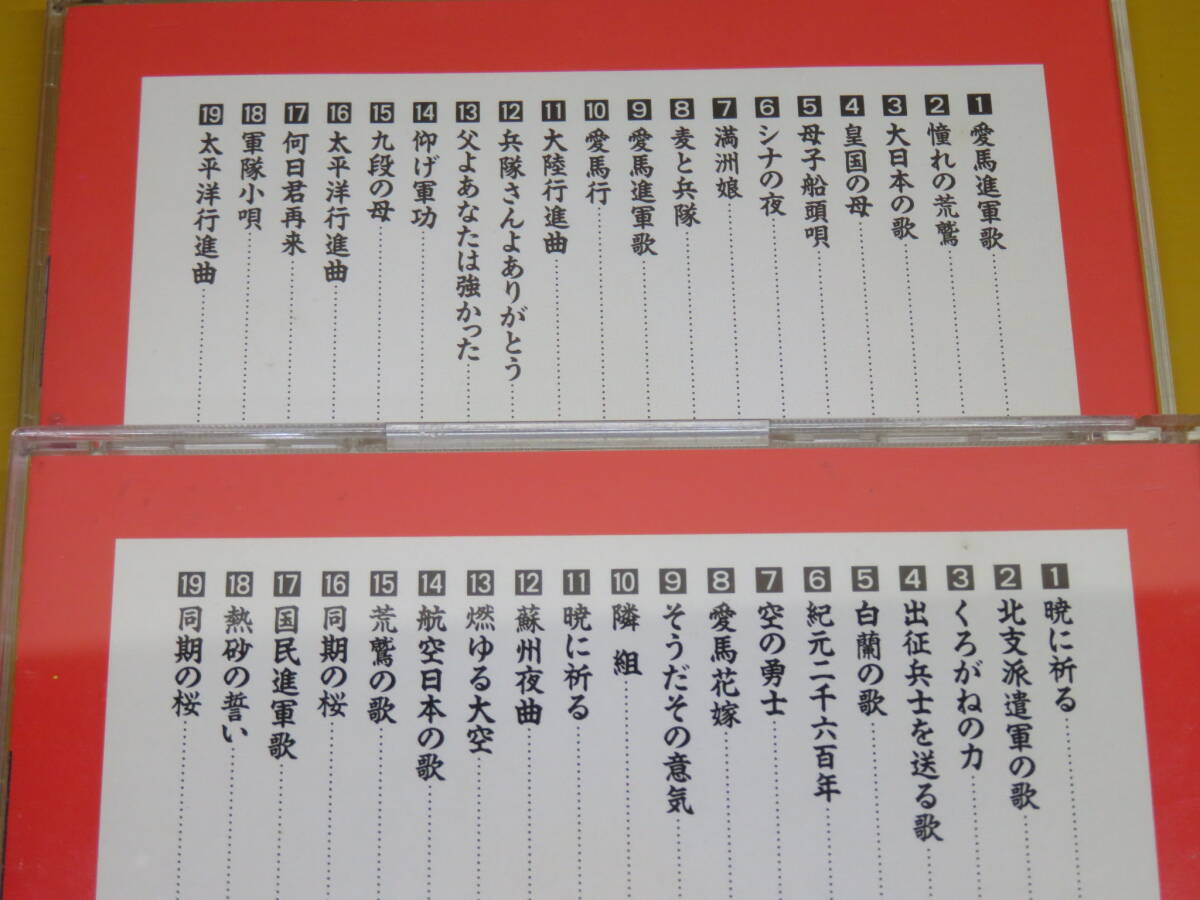 1 愛馬進軍歌
2 憧れの荒鷲
3 大日本の歌
4 皇国の母
5 母子船頭唄
6 シナの夜
7 満洲娘
8 麦と兵隊
9 愛馬進軍歌
10 愛馬行
11 大陸行進曲
12 兵隊さんよありがとう
13 父よあなたは強かった
14 仰げ軍功
15 九段の母
16 太平洋行進曲
17 何日君再来
18 軍隊小唄
19 太平洋行進曲
1 暁に祈る
2 北支派遣軍の歌
3 くろがねの力
4 出征兵士を送る歌
5 白蘭の歌
6 紀元二千六百年
7 空の勇士
8 愛馬花嫁
9 そうだその意気
10 隣 組
11 暁に祈る
12 蘇州夜曲
13 燃ゆる大空
14 航空日本の歌
15 荒鷲の歌
16 同期の桜
17 国民進軍歌
18 熱砂の誓い
19 同期の桜